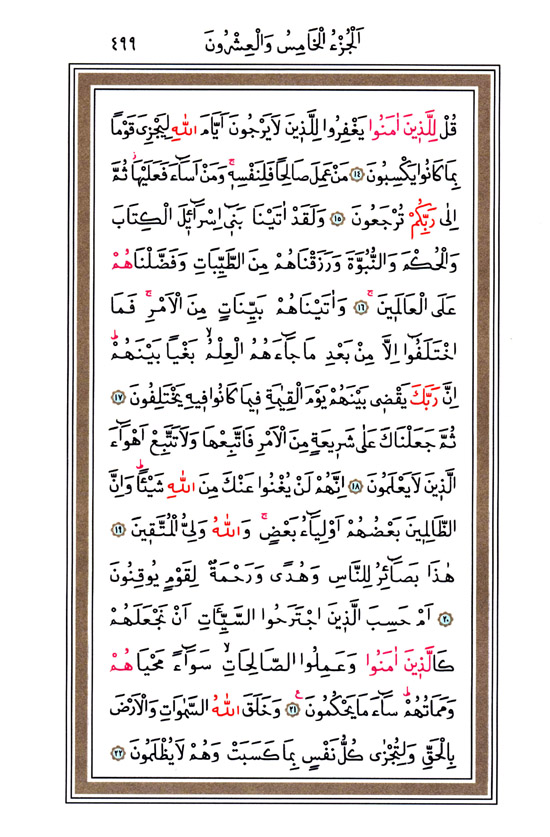 اَلْجُزْءُ الْخَامِسُ وَالْعِشْرُونَ ٤٩٩
قُلْ لِلَّذ۪ينَ اٰمَنُوا يَغْفِرُوا لِلَّذ۪ينَ لَا يَرْجُونَ اَيَّامَ اللّٰهِ لِيَجْزِيَ قَوْمًا
بِمَا كَانُوا يَكْسِبُونَ ١٤ مَنْ عَمِلَ صَالِحًا فَلِنَفْسِه۪ۚ وَمَنْ اَسَٓاءَ فَعَلَيْهَاۘ ثُمَّ
اِلٰى رَبِّكُمْ تُرْجَعُونَ ١٥ وَلَقَدْ اٰتَيْنَا بَن۪ٓي اِسْرَٓائ۪لَ الْكِتَابَ
وَالْحُكْمَ وَالنُّبُوَّةَ وَرَزَقْنَاهُمْ مِنَ الطَّيِّبَاتِ وَفَضَّلْنَاهُمْ
عَلَى الْعَالَم۪ينَۚ ١٦ وَاٰتَيْنَاهُمْ بَيِّنَاتٍ مِنَ الْاَمْرِۚ فَمَا
اخْتَلَفُٓوا اِلَّا مِنْ بَعْدِ مَا جَٓاءَهُمُ الْعِلْمُۙ بَغْيًا بَيْنَهُمْۜ
اِنَّ رَبَّكَ يَقْض۪ي بَيْنَهُمْ يَوْمَ الْقِيٰمَةِ ف۪يمَا كَانُوا ف۪يهِ يَخْتَلِفُونَ ١٧
ثُمَّ جَعَلْنَاكَ عَلٰى شَر۪يعَةٍ مِنَ الْاَمْرِ فَاتَّبِعْهَا وَلَا تَتَّبِعْ اَهْوَٓاءَ
الَّذ۪ينَ لَا يَعْلَمُونَ ١٨ اِنَّهُمْ لَنْ يُغْنُوا عَنْكَ مِنَ اللّٰهِ شَيْـًٔاۜ وَاِنَّ
الظَّالِم۪ينَ بَعْضُهُمْ اَوْلِيَٓاءُ بَعْضٍۚ وَاللّٰهُ وَلِيُّ الْمُتَّق۪ينَ ١٩
هٰذَا بَصَٓائِرُ لِلنَّاسِ وَهُدًى وَرَحْمَةٌ لِقَوْمٍ يُوقِنُونَ
٢٠ اَمْ حَسِبَ الَّذ۪ينَ اجْتَرَحُوا السَّيِّـَٔاتِ اَنْ نَجْعَلَهُمْ
كَالَّذ۪ينَ اٰمَنُوا وَعَمِلُوا الصَّالِحَاتِۙ سَوَٓاءً مَحْيَاهُمْ
وَمَمَاتُهُمْۜ سَٓاءَ مَا يَحْكُمُونَ۟ ٢١ وَخَلَقَ اللّٰهُ السَّمٰوَاتِ وَالْاَرْضَ
بِالْحَقِّ وَلِتُجْزٰى كُلُّ نَفْسٍ بِمَا كَسَبَتْ وَهُمْ لَا يُظْلَمُونَ ٢٢